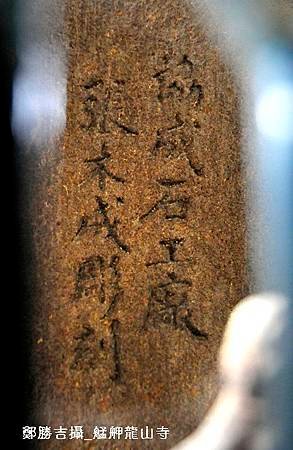 協成石工廠
張木成彫刻
鄭勝吉攝_艋舺龍山寺